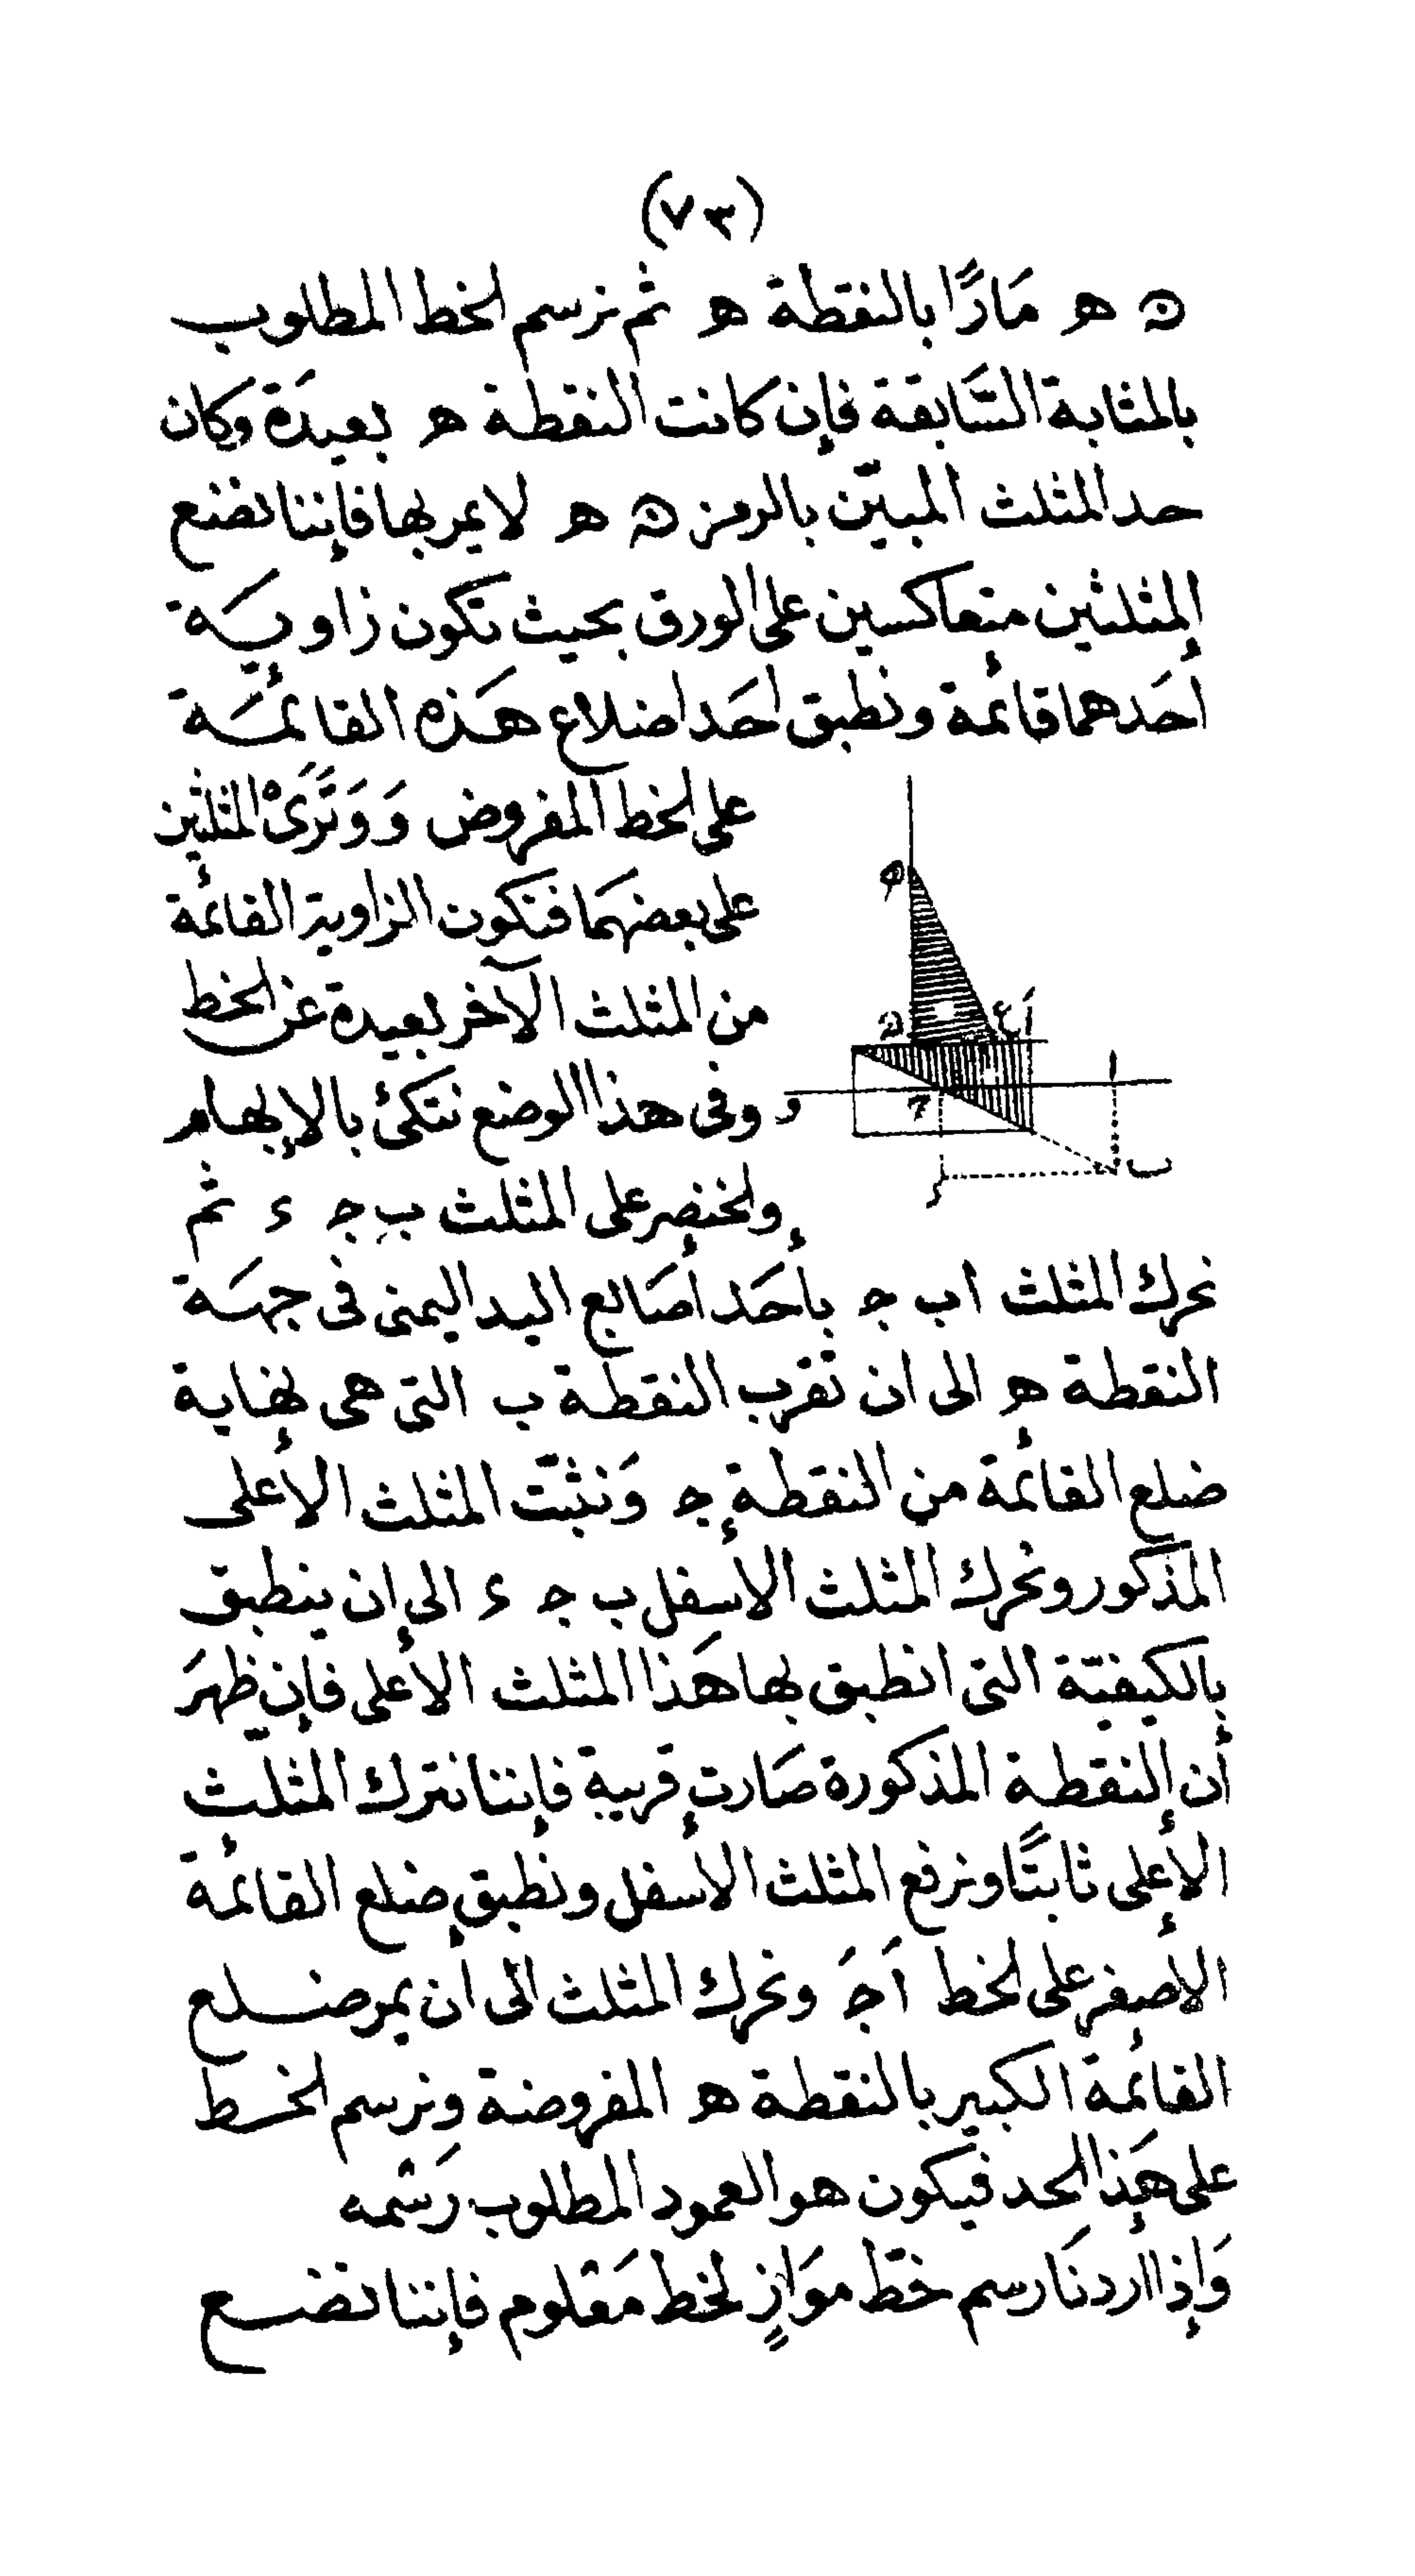 (٧٣)
ن ه مَارًّا بالنقطة ه ثم نرسم الخط المطلوب
بالمثابة السَّابقة فإن كانت النقطة ه بعيدَة وكان
حد المثلث المبيّن بالرمز ن ه لا يمر بها فإننا نضع
المثلثين متعاكسين على الورق بحيث تكون زاويَة
أحَدهما قائمة ونطبق احَد اضلاع هَذه القائمَة
على الخط المفروض وَوَتَرَىْ المثلثين
على بعضهَما فتكون الزاوية القائمة
من المثلث الآخر بعيدة عن الخط
وفى هذا الوضع نتكئ بالإبهام
والخنصر على المثلث ب ج ء ثم
نحرك المثلث ا ب ج بأحَد أصَابع اليد اليمنى فى جهَة
النقطة ه الى ان تقرب النقطة ب التى هى نهاية
ضلع القائمة من النقطة ج وَنثبّت المثلث الأعلى
المذكور ونحرك المثلث الأسفل ب ج ء الى ان ينطبق
بالكيفيّة التى انطبق بها هَذا المثلث الأعلى فإن ظهرَ
أن النقطة المذكورة صَارت قريبة فإننا نترك المثلّث
الأعلى ثابتًا ونرفع المثلث الأسفل ونطبق ضلع القائمة
الأصغر على الخط اَ جَ ونحرك المثلث الى أن يمر ضلع
القائمة الكبير بالنقطة ه المفروضة ونرسم الخط
على هَذا الحد فيكون هو العمود المطلوب رَسْمه
وَإذا أردنَا رسم خطّ موَازٍ لخط مَعْلوم فإننا نضع
ه
ن
ع
اَ
ا
و
ج
ب
ء